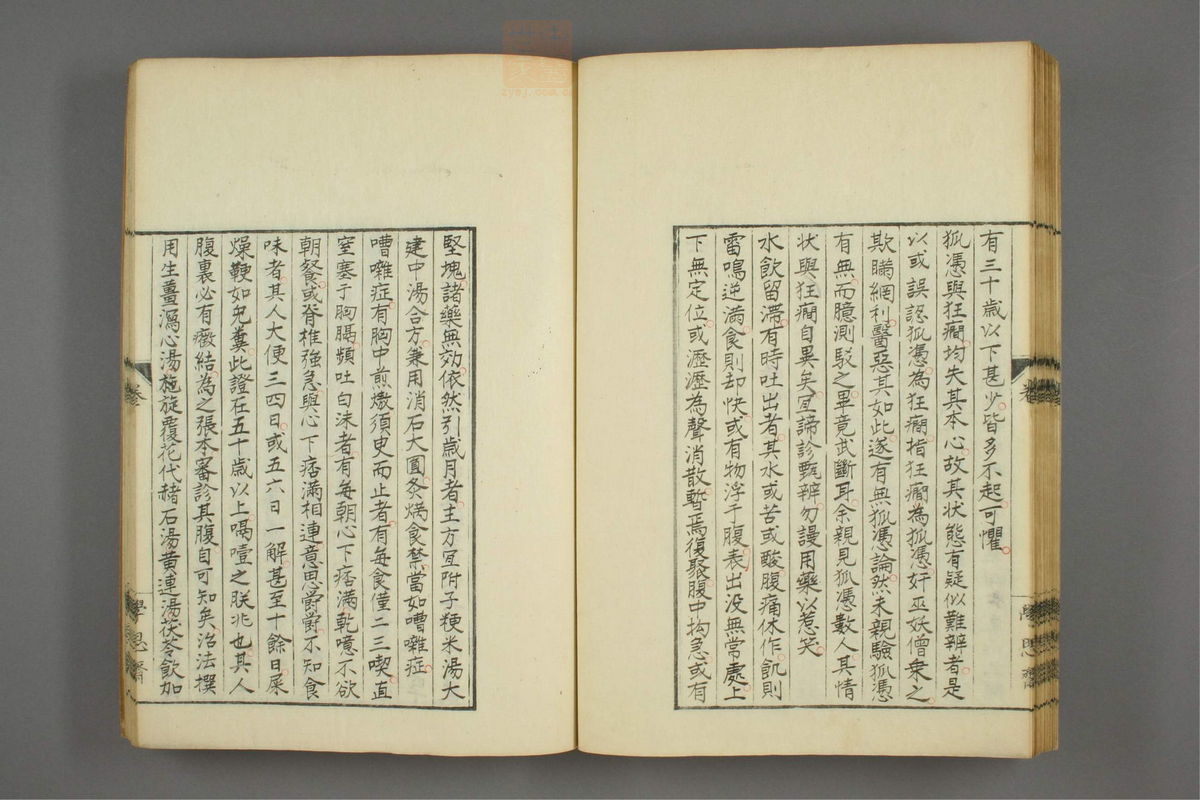 有三十歲以下甚少皆多不起可懼
狐憑與狂癇均失其本心故其狀態有疑似難辨者是
以或誤認狐憑為狂癇指狂癇為狐憑奸巫妖僧乗之
欺瞞網利醫惡其如此遂有無狐憑論然未親驗狐憑
有無而臆測駁之畢竟武斷耳余親見狐憑數人其情
状與狂癇自異矣宜諦診甄辨勿謾用藥以惹笑
水飲留滯有時吐出者其水或苦或酸腹痛休作飢則
雷鳴逆滿食則却快或有物浮于腹表出没無常處上
下無定位或瀝瀝為聲消散暫焉復聚腹中拘急或有
堅塊諸藥無効依然引歲月者主方宜附子粳米湯大
建中湯合方兼用消石大圓灸焫食禁當如嘈雜症
嘈雜症有胸中煎燉須臾而止者有每食僅二三喫直
窒塞于胸膈頻吐白沫者有每朝心下痞滿乾噫不欲
朝餐或脊椎強急與心下痞滿相連意思鬱鬱不知食
味者其人大便三四日或五六日一解甚至十餘日屎
燥鞕如兎糞此證在五十歲以上噎之朕兆也其人
腹裏必有癥結為之張本審診其腹自可知矣治法撰
用生薑瀉心湯旋覆花代赭石湯黄連湯茯苓飲加
卷
學思齋